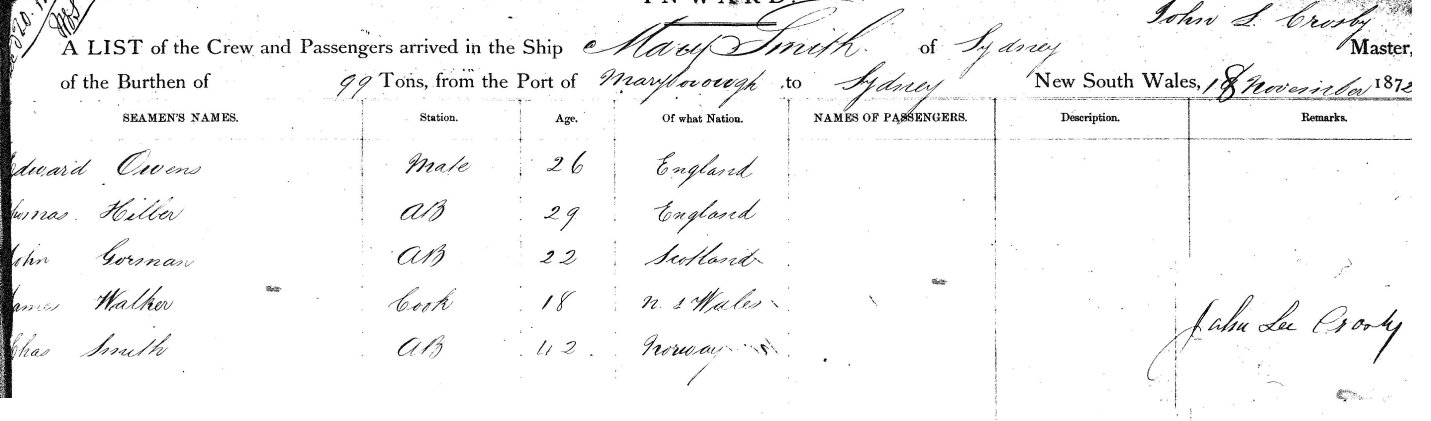 INWARD.
John L. Crosby
A LIST of the Crew and Passengers arrived in the Ship Mary Smith of Sydney Master,
of the Burthen of 99 Tons, from the Port of Maryborough to Sydney New South Wales, 18 November 1872
SEAMEN'S NAMES. Station. Age. Of what Nation. NAMES OF PASSENGERS. Description. Remarks.
Edward Owens Mate 26 England
Thomas Hiller AB 29 England
John Gorman AB 22 Scotland
James Walker Cook 18 N. S Wales
John Lee Crosby
Chas Smith AB 42 Norway